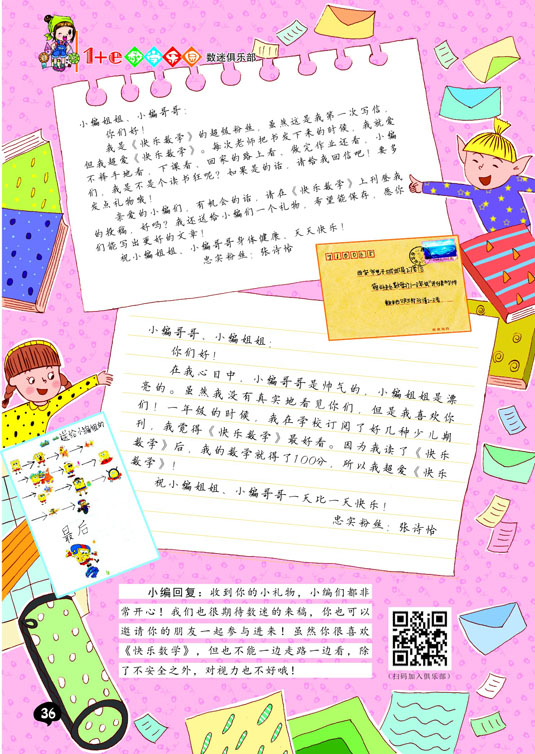 1+e 数学乐园 数迷俱乐部
小编姐姐、小编哥哥：
你们好！
我是《快乐数学》的超级粉丝，虽然这是我第一次写信，
但我超爱《快乐数学》。每次老师把书发下来的时候，我就爱
不释手地看，下课看，回家的路上看，做完作业还看，小编
们，我是不是个读书狂呢？如果是的话，请给我回信吧！要多
发点礼物哦！
亲爱的小编们，有机会的话，请在《快乐数学》上刊登我
的投稿，好吗？我还送给小编们一个礼物，希望能保存，愿你
们能写出更好的文章！
祝小编姐姐、小编哥哥身体健康，天天快乐！
忠实粉丝：张诗恰
小编哥哥、小编姐姐：
你们好！
在我心目中，小编哥哥是帅气的，小编姐姐是漂
亮的。虽然我没有真实地看见你们，但是我喜欢你
们！一年级的时候，我在学校订阅了好几种少儿期
刊，我觉得《快乐数学》最好看。因为我读了《快乐
数学》后，我的数学就得了100分，所以我超爱《快乐
数学》！
祝小编姐姐、小编哥哥一天比一天快乐！
忠实粉丝：张诗恰
送给小编姐的
最后
小编回复：收到你的小礼物，小编们都非
常开心！我们也很期待数迷的来稿，你也可以
邀请你的朋友一起参与进来！虽然你很喜欢
《快乐数学》，但也不能一边走路一边看，除
了不安全之外，对视力也不好哦！
（扫码加入俱乐部）
36